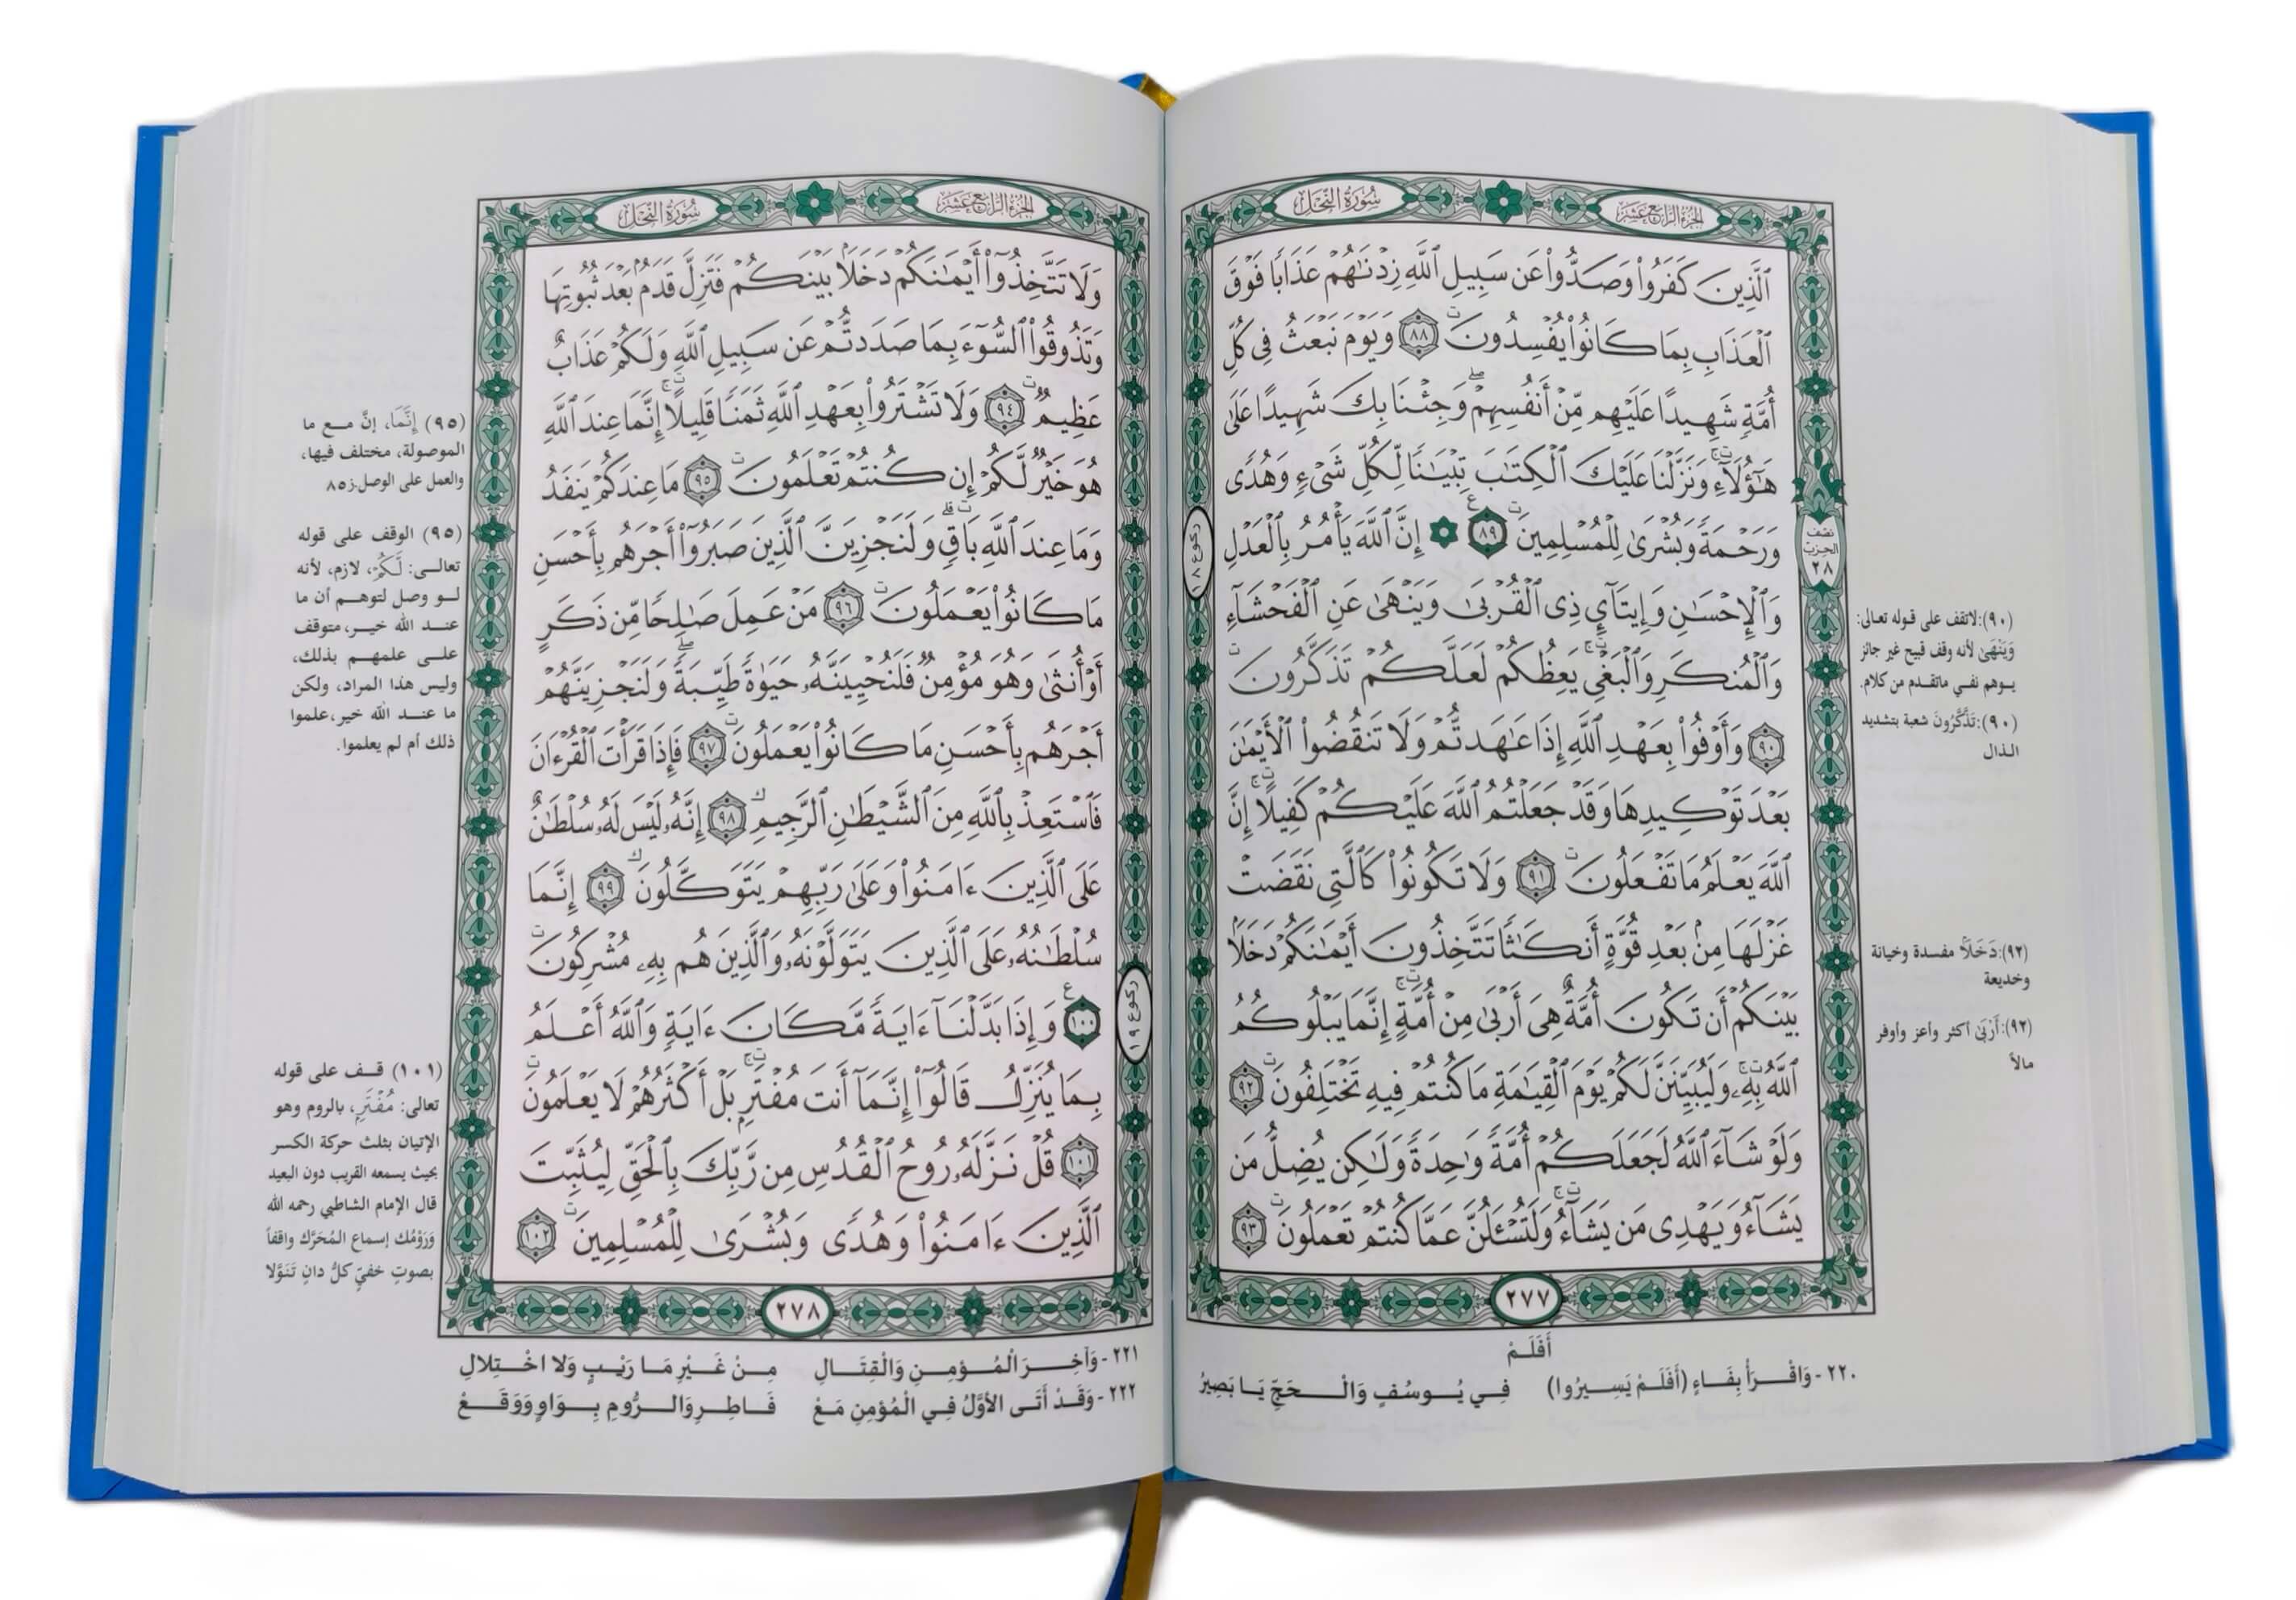 الجزء الرابع عشر
سورة النحل
ٱلَّذِينَ كَفَرُوا۟ وَصَدُّوا۟ عَن سَبِيلِ ٱللَّهِ زِدْنَٰهُمْ عَذَابًا فَوْقَ
ٱلْعَذَابِ بِمَا كَانُوا۟ يُفْسِدُونَ ٨٨ وَيَوْمَ نَبْعَثُ فِى كُلِّ
أُمَّةٍ شَهِيدًا عَلَيْهِم مِّنْ أَنفُسِهِمْ وَجِئْنَا بِكَ شَهِيدًا عَلَىٰ
هَٰٓؤُلَآءِ وَنَزَّلْنَا عَلَيْكَ ٱلْكِتَٰبَ تِبْيَٰنًا لِّكُلِّ شَىْءٍ وَهُدًى
وَرَحْمَةً وَبُشْرَىٰ لِلْمُسْلِمِينَ ٨٩ إِنَّ ٱللَّهَ يَأْمُرُ بِٱلْعَدْلِ
وَٱلْإِحْسَٰنِ وَإِيتَآئِ ذِى ٱلْقُرْبَىٰ وَيَنْهَىٰ عَنِ ٱلْفَحْشَآءِ
وَٱلْمُنكَرِ وَٱلْبَغْىِ يَعِظُكُمْ لَعَلَّكُمْ تَذَكَّرُونَ
٩٠ وَأَوْفُوا۟ بِعَهْدِ ٱللَّهِ إِذَا عَٰهَدتُّمْ وَلَا تَنقُضُوا۟ ٱلْأَيْمَٰنَ
بَعْدَ تَوْكِيدِهَا وَقَدْ جَعَلْتُمُ ٱللَّهَ عَلَيْكُمْ كَفِيلًا إِنَّ
ٱللَّهَ يَعْلَمُ مَا تَفْعَلُونَ ٩١ وَلَا تَكُونُوا۟ كَٱلَّتِى نَقَضَتْ
غَزْلَهَا مِنۢ بَعْدِ قُوَّةٍ أَنكَٰثًا تَتَّخِذُونَ أَيْمَٰنَكُمْ دَخَلًۢا
بَيْنَكُمْ أَن تَكُونَ أُمَّةٌ هِىَ أَرْبَىٰ مِنْ أُمَّةٍ إِنَّمَا يَبْلُوكُمُ
ٱللَّهُ بِهِۦ وَلَيُبَيِّنَنَّ لَكُمْ يَوْمَ ٱلْقِيَٰمَةِ مَا كُنتُمْ فِيهِ تَخْتَلِفُونَ ٩٢
وَلَوْ شَآءَ ٱللَّهُ لَجَعَلَكُمْ أُمَّةً وَٰحِدَةً وَلَٰكِن يُضِلُّ مَن
يَشَآءُ وَيَهْدِى مَن يَشَآءُ وَلَتُسْـَٔلُنَّ عَمَّا كُنتُمْ تَعْمَلُونَ ٩٣
٢٧٧
نصف
الحزب
٢٨
ركوع ١٨
(٩٠):لاتقف على قوله تعالى:
وَيَنْهَىٰ لأنه وقف قبيح غير جائز
يوهم نفي ماتقدم من كلام.
(٩٠):تَذَّكَّرُونَ شعبة بتشديد
الذال
(٩٢):دَخَلًۢا مفسدة وخيانة
وخديعة
(٩٢):أَرْبَىٰ أكثر وأعز وأوفر
مالاً
أَفَلَمْ
٢٢٠- وَاقْرَأْ بِفَاءٍ (أَفَلَمْ يَسِيرُوا) فِي يُوسُفٍ وَالْحَجِّ يَا بَصِيرُ
الجزء الرابع عشر
سورة النحل
وَلَا تَتَّخِذُوٓا۟ أَيْمَٰنَكُمْ دَخَلًۢا بَيْنَكُمْ فَتَزِلَّ قَدَمٌۢ بَعْدَ ثُبُوتِهَا
وَتَذُوقُوا۟ ٱلسُّوٓءَ بِمَا صَدَدتُّمْ عَن سَبِيلِ ٱللَّهِ وَلَكُمْ عَذَابٌ
عَظِيمٌ ٩٤ وَلَا تَشْتَرُوا۟ بِعَهْدِ ٱللَّهِ ثَمَنًا قَلِيلًا إِنَّمَا عِندَ ٱللَّهِ
هُوَ خَيْرٌ لَّكُمْ إِن كُنتُمْ تَعْلَمُونَ ٩٥ مَا عِندَكُمْ يَنفَدُ
وَمَا عِندَ ٱللَّهِ بَاقٍ وَلَنَجْزِيَنَّ ٱلَّذِينَ صَبَرُوٓا۟ أَجْرَهُم بِأَحْسَنِ
مَا كَانُوا۟ يَعْمَلُونَ ٩٦ مَنْ عَمِلَ صَٰلِحًا مِّن ذَكَرٍ
أَوْ أُنثَىٰ وَهُوَ مُؤْمِنٌ فَلَنُحْيِيَنَّهُۥ حَيَوٰةً طَيِّبَةً وَلَنَجْزِيَنَّهُمْ
أَجْرَهُم بِأَحْسَنِ مَا كَانُوا۟ يَعْمَلُونَ ٩٧ فَإِذَا قَرَأْتَ ٱلْقُرْءَانَ
فَٱسْتَعِذْ بِٱللَّهِ مِنَ ٱلشَّيْطَٰنِ ٱلرَّجِيمِ ٩٨ إِنَّهُۥ لَيْسَ لَهُۥ سُلْطَٰنٌ
عَلَى ٱلَّذِينَ ءَامَنُوا۟ وَعَلَىٰ رَبِّهِمْ يَتَوَكَّلُونَ ٩٩ إِنَّمَا
سُلْطَٰنُهُۥ عَلَى ٱلَّذِينَ يَتَوَلَّوْنَهُۥ وَٱلَّذِينَ هُم بِهِۦ مُشْرِكُونَ
١٠٠ وَإِذَا بَدَّلْنَآ ءَايَةً مَّكَانَ ءَايَةٍ وَٱللَّهُ أَعْلَمُ
بِمَا يُنَزِّلُ قَالُوٓا۟ إِنَّمَآ أَنتَ مُفْتَرٍۭ بَلْ أَكْثَرُهُمْ لَا يَعْلَمُونَ
١٠١ قُلْ نَزَّلَهُۥ رُوحُ ٱلْقُدُسِ مِن رَّبِّكَ بِٱلْحَقِّ لِيُثَبِّتَ
ٱلَّذِينَ ءَامَنُوا۟ وَهُدًى وَبُشْرَىٰ لِلْمُسْلِمِينَ ١٠٢
٢٧٨
ركوع ١٩
(٩٥) إِنَّمَا، إنَّ مع ما
الموصولة، مختلف فيها،
والعمل على الوصل.ز٨٥
(٩٥) الوقف على قوله
تعالى: لَّكُمْ، لازم، لأنه
لو وصل لتوهم أن ما
عند الله خير، متوقف
على علمهم بذلك،
وليس هذا المراد، ولكن
ما عند الله خير،علموا
ذلك أم لم يعلموا.
(١٠١) قف على قوله
تعالى: مُفْتَرٍ، بالروم وهو
الإتيان بثلث حركة الكسر
بحيث يسمعه القريب دون البعيد
قال الإمام الشاطبي رحمه الله
وَرَوْمُك إسماع المُحَرَّك واقفاً
بصوتٍ خفيٍّ كلُّ دانٍ تَنَوَّلا
٢٢١- وَآخِرَ الْمُؤمِنِ وَالْقِتَالِ مِنْ غَيْرِ مَا رَيْبٍ وَلا اخْتِلالِ
٢٢٢- وَقَدْ أَتَى الأوَّلُ فِي الْمُؤمِنِ مَعْ فَاطِرِ وَالرُّومِ بِوَاوٍ وَوَقَعْ